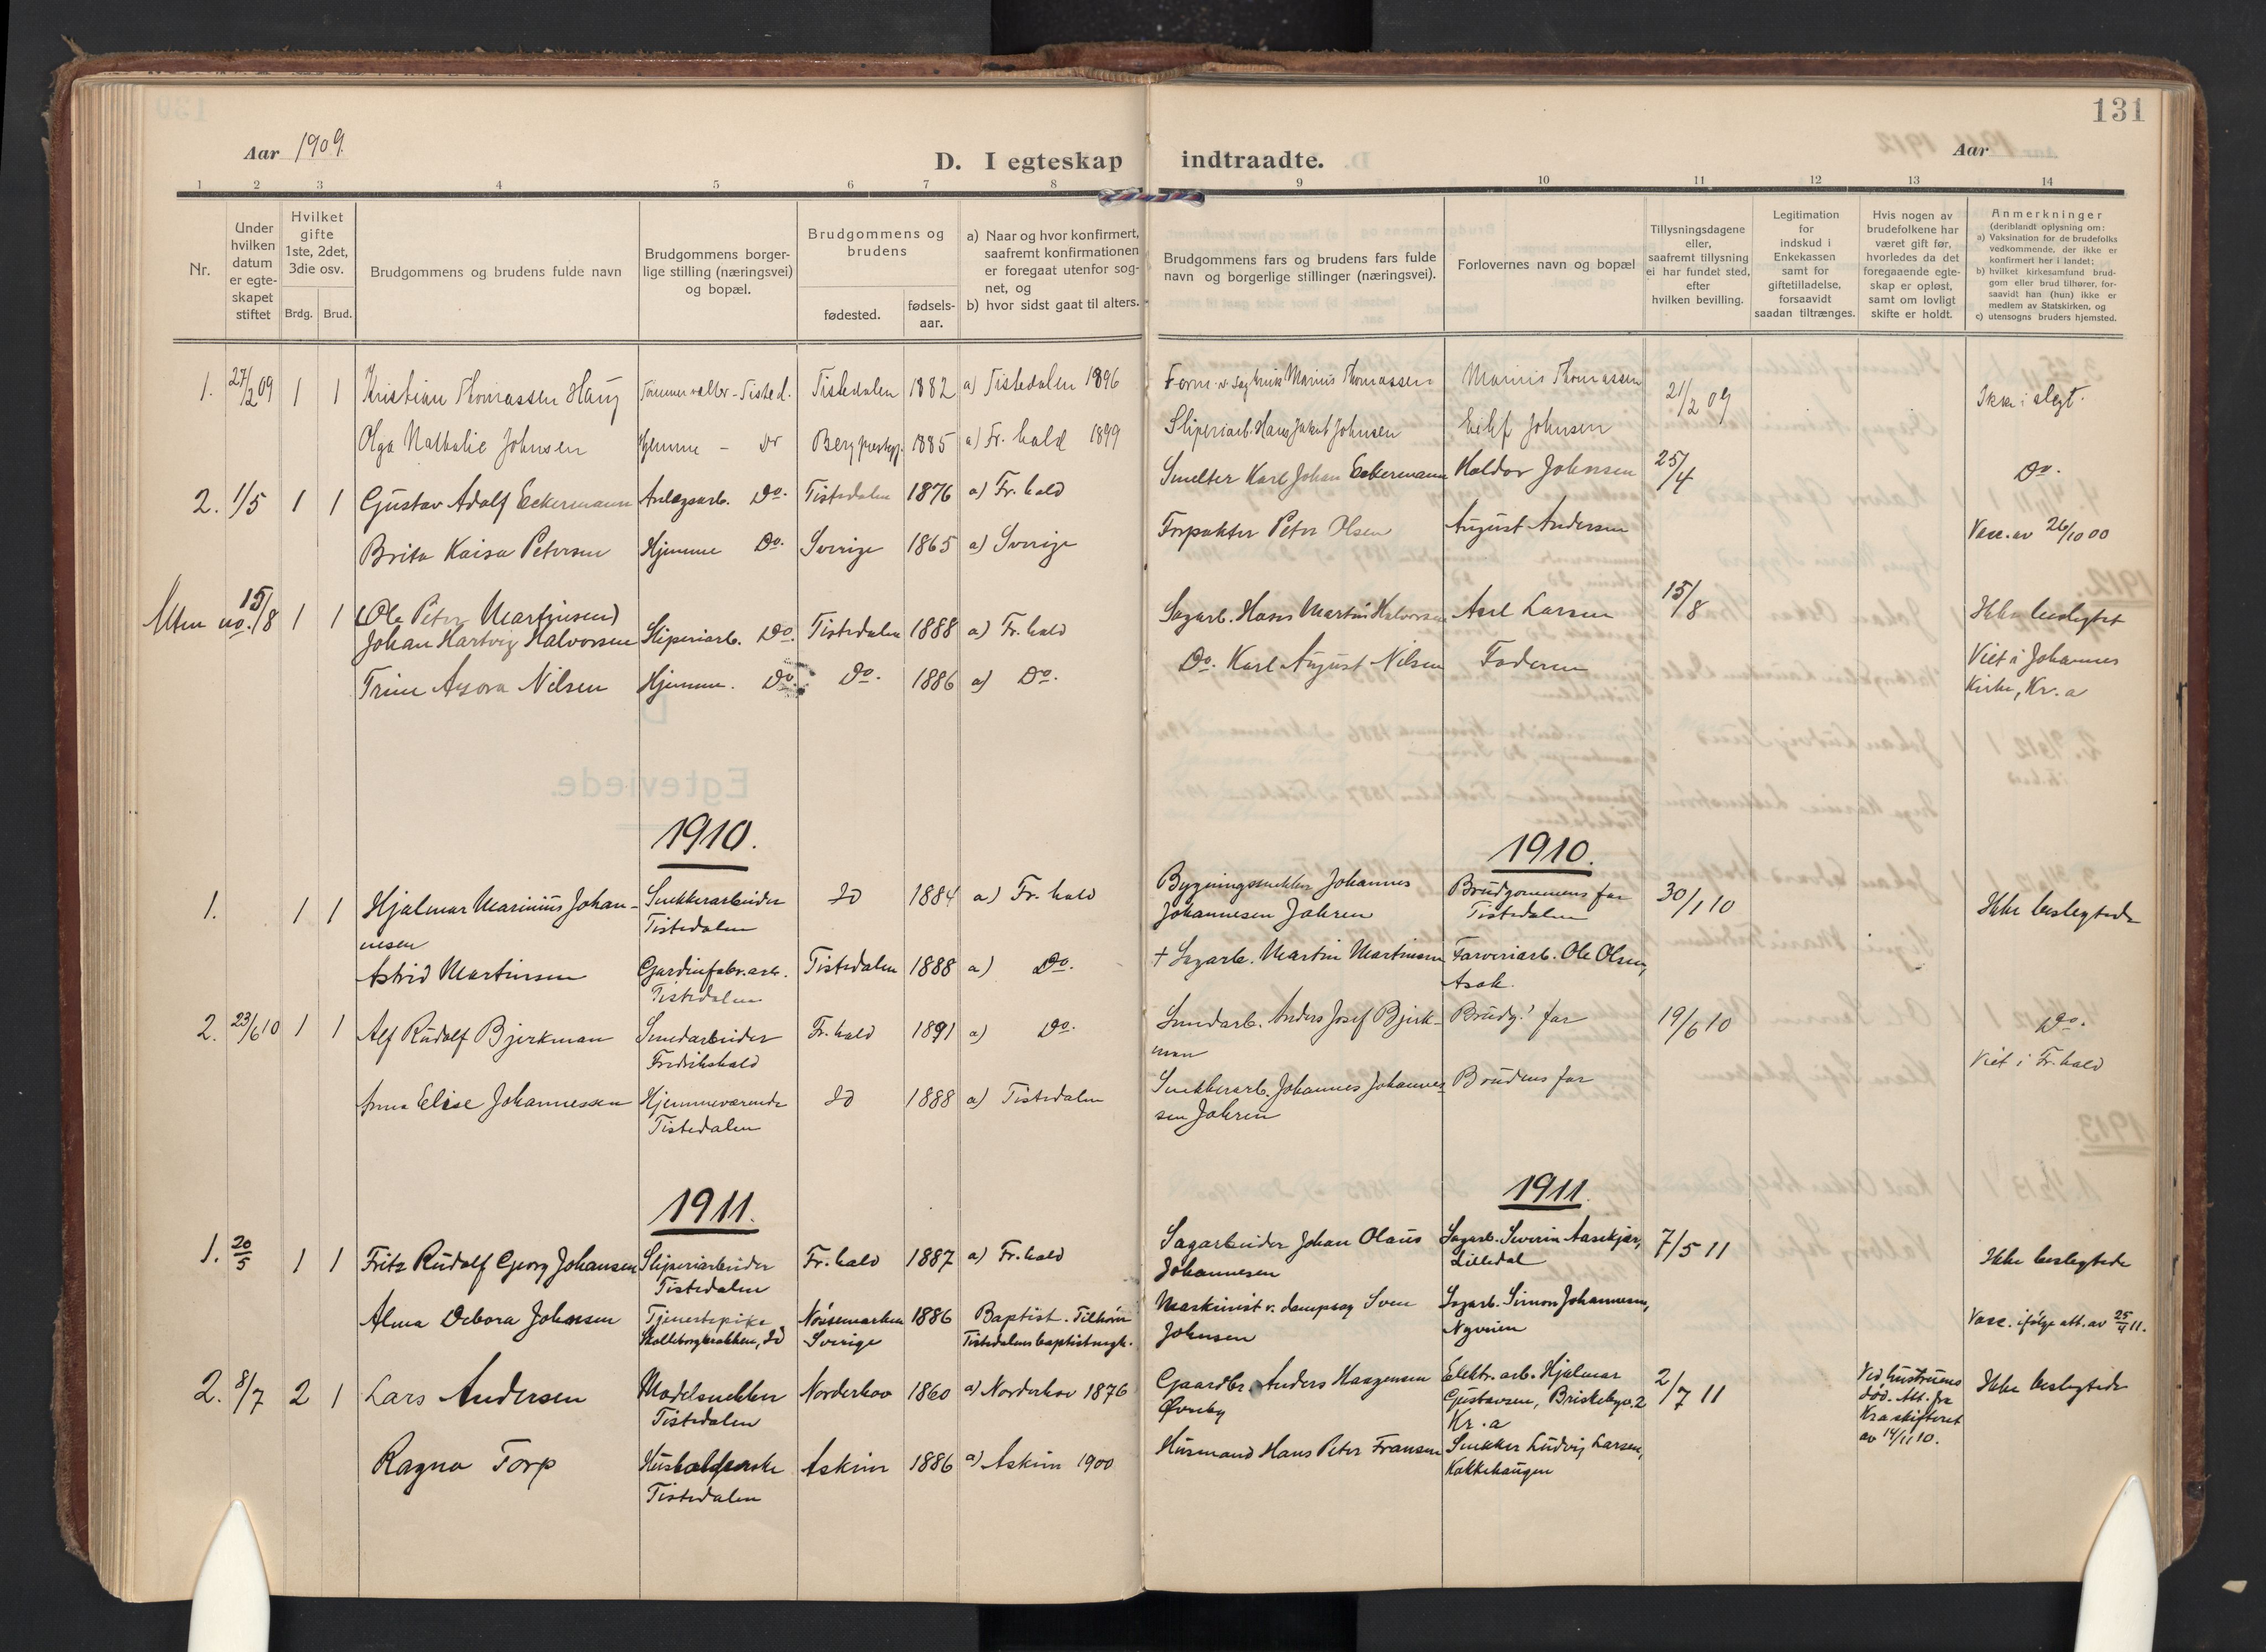 131
Aar 1909.
D. I egteskap indtraadte.
Aar
1 2 3 4 5 6 7 8 9 10 11 12 13 14
Nr.
Under hvilken datum er egte-skapet stiftet
Hvilket gifte 1ste, 2det, 3die osv.
Brdg. Brud.
Brudgommens og brudens fulde navn
Brudgommens borger-lige stilling (næringsvei) og bopæl.
Brudgommens og brudens
fødested.
fødsels-aar.
a) Naar og hvor konfirmert, saafremt konfirmationen er foregaat utenfor sog-net, og
b) hvor sidst gaat til alters.
Brudgommens fars og brudens fars fulde navn og borgerlige stillinger (næringsvei).
Forlovernes navn og bopæl
Tillysningsdagene eller, saafremt tillysning ei har fundet sted, efter hvilken bevilling.
Legitimation for indskud i Enkekassen samt for giftetilladelse, forsaavidt saadan tiltrænges.
Hvis nogen av brudefolkene har været gift før, hvorledes da det foregaaende egte-skap er opløst, samt om lovligt skifte er holdt.
Anmerkninger
(deriblandt oplysning om:
a) Vaksination for de brudefolks vedkommende, der ikke er konfirmert her i landet;
b) hvilket kirkesamfund brud-gom eller brud tilhører, for-saavidt han (hun) ikke er medlem av Statskirken, og
c) utensogns bruders hjemsted.
1. 27/2 09 1 1 Kristian Thomassen Haug Tømmervelter - Tisted. Tistedalen 1882 a) Tistedalen 1896 Form. v. Sagbruk Marius Thomassen Marius Thomassen 21/2 09 Ikke i slegt.
Olga Nathalie Johnsen Hjemme - Do Berg prestegj. 1885 a) Fr. hald 1899 Sliperiarb. Hans Jakob Johnsen Eilif Johnsen
2. 1/5 1 1 Gustav Adolf Eckermann Anlægsarb. Do. Tistedalen 1876 a) Fr. hald Smelter Karl Johan Eckermann Haldor Johnsen 25/4 Do.
Brita Kaisa Petersen Hjemme Do. Sverige 1865 a) Sverige Forpakter Peter Olsen August Andersen Vacc. av 26/10 00
Uten no. 15/8 1 1 (Ole Peter Martinsen)
Johan Hartvig Halvorsen Sliperiarb. Do. Tistedalen 1888 a) Fr. hald Sagarb. Hans Martin Halvorsen Axel Larsen 15/8 Ikke beslegtet
Trine Aurora Nilsen Hjemme. Do. Do. 1886 a) Do. Do. Karl August Nilsen Faderen Viet i Johannes
Kirke, Kr.a
1910. 1910.
1. 1 1 Hjalmar Marinius Johan- Snekkerarbeider Sd 1884 a) Fr. hald Bygningssnekker Johannes Brudgommens far 30/1 10 Ikke beslegtede
nesen Tistedalen Johannesen Jahren Tistedalen
Astrid Martinsen Gardinfabr. arb. Tistedalen 1888 a) Do. + Sagarb. Martin Martinsen Farveriarb. Ole Olsen,
Tistedalen Asak.
2. 23/6 10 1 1 Alf Rudolf Bjerkman Smedarbeider Fr. hald 1891 a) Do. Smedarb. Anders Josef Bjerk- Brudg.s far 19/6 10 Do.
Fredrikshald man Viet i Fr. hald
Anna Elise Johannessen Hjemmeværende Sd 1888 a) Tistedalen Snekkerarb. Johannes Johannes- Brudens far
Tistedalen sen Jahren
1911. 1911.
1. 20/5 1 1 Fritz Rudolf Georg Johansen Sliperiarbeider Fr. hald 1887 a) Fr. hald Sagarbeider Johan Olaus Sagarb. Severin Aasekjær, 7/5 11 Ikke beslegtede
Tistedalen Johannesen Lilledal
Alma Debora Johnsen Tjenestepike Nøssemarken 1886 Baptist. Tilhører Maskinist v. dampsag Sven Sagarb. Simon Johannesen, Vacc. ifølge att. av 25/4 11.
Skolleborgbakken, Sd Sverige Tistedalens baptistmgh. Johnsen Nyveien
2. 8/7 2 1 Lars Andersen Modelsnekker Norderhov 1860 a) Norderhov 1876 Gaardbr. Anders Haagensen Elektr. arb. Hjalmar 2/7 11 Ved hustruens Ikke beslegtede
Tistedalen Øvreby Gustavsen, Briskebyv. 2 død. Att. fra
Kr.a Kr.a skifteret
av 14/11 10.
Ragna Torp Husholderske Askim 1886 a) Askim 1900 Husmand Hans Peter Fransen Snekker Ludvig Larsen,
Tistedalen Kakkehaugen